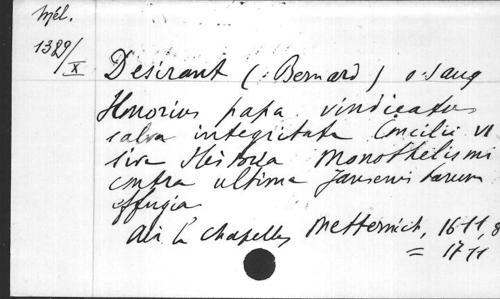 Mél.
1329/X
Desirant (: Bernard) o: s aug
Honorius papa vindicatus
salva integritate Concilii VI
sive Historia Monothelismi
contra ultima Jansenistarum
effugia
Aix la Chapelle, Metternich, 1611, 8
= 1711